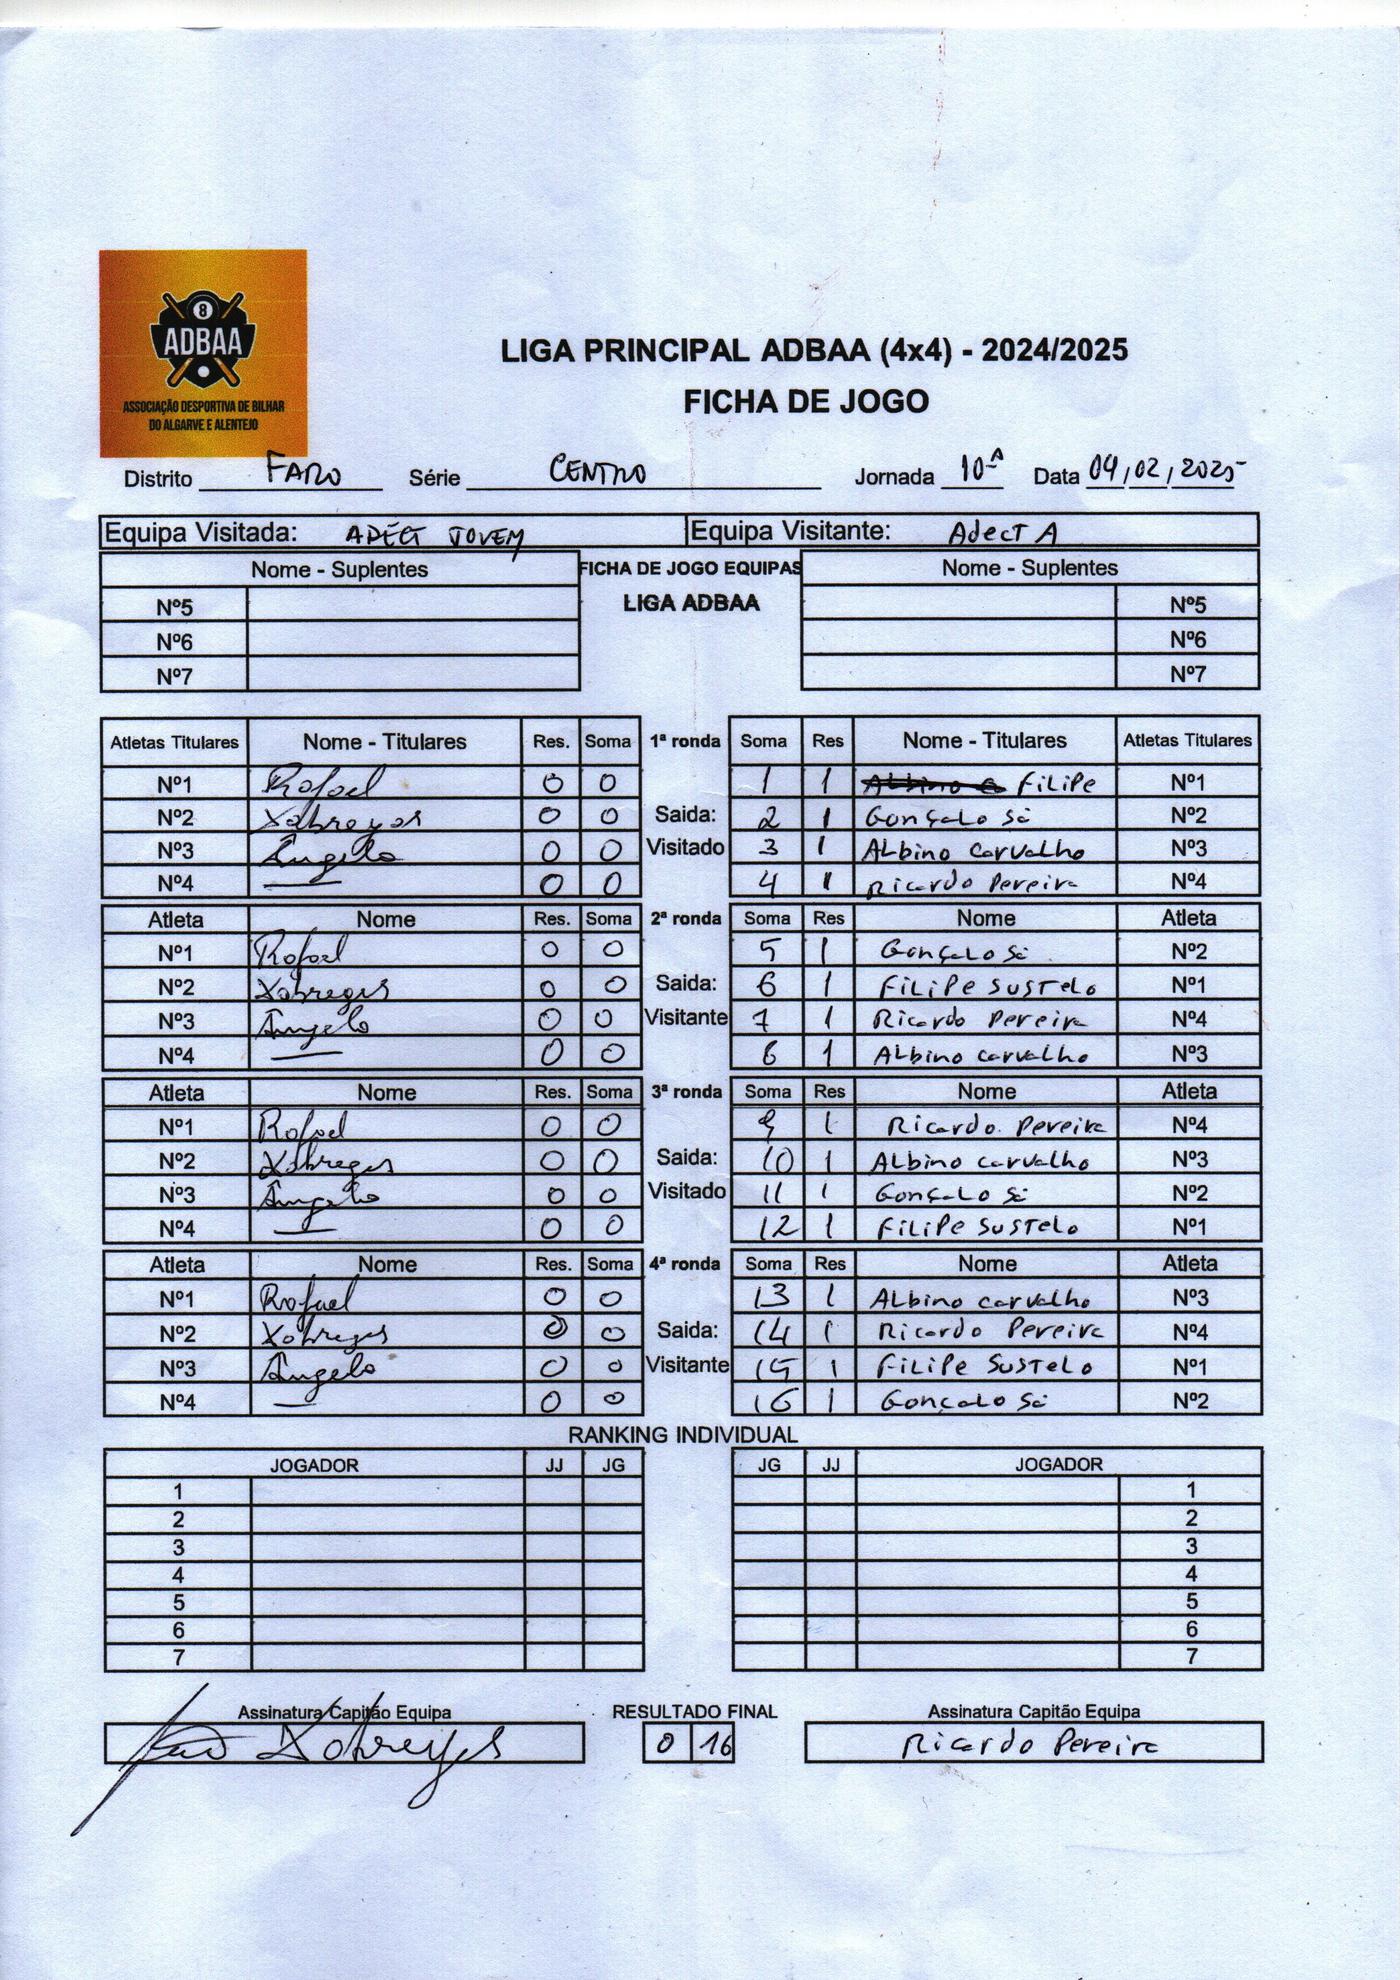 8
ADBAA
ASSOCIAÇÃO DESPORTIVA DE BILHAR
DO ALGARVE E ALENTEJO
LIGA PRINCIPAL ADBAA (4x4) - 2024/2025
FICHA DE JOGO
Distrito FARO Série CENTRO Jornada 10ª Data 04/02/2025
Equipa Visitada: ADECT JOVEM Equipa Visitante: Adect A
Nome - Suplentes FICHA DE JOGO EQUIPAS Nome - Suplentes
Nº5 LIGA ADBAA Nº5
Nº6 Nº6
Nº7 Nº7
Atletas Titulares Nome - Titulares Res. Soma 1ª ronda Soma Res Nome - Titulares Atletas Titulares
Nº1 Rafael 0 0 1 1 Filipe Nº1
Nº2 Xabregas 0 0 Saida: 2 1 Gonçalo Sá Nº2
Nº3 Ângelo 0 0 Visitado 3 1 Albino Carvalho Nº3
Nº4 — 0 0 4 1 Ricardo Pereira Nº4
Atleta Nome Res. Soma 2ª ronda Soma Res Nome Atleta
Nº1 Rafael 0 0 5 1 Gonçalo Sá Nº2
Nº2 Xabregas 0 0 Saida: 6 1 Filipe Sustelo Nº1
Nº3 Ângelo 0 0 Visitante 7 1 Ricardo Pereira Nº4
Nº4 — 0 0 8 1 Albino Carvalho Nº3
Atleta Nome Res. Soma 3ª ronda Soma Res Nome Atleta
Nº1 Rafael 0 0 9 1 Ricardo Pereira Nº4
Nº2 Xabregas 0 0 Saida: 10 1 Albino Carvalho Nº3
Nº3 Ângelo 0 0 Visitado 11 1 Gonçalo Sá Nº2
Nº4 — 0 0 12 1 Filipe Sustelo Nº1
Atleta Nome Res. Soma 4ª ronda Soma Res Nome Atleta
Nº1 Rafael 0 0 13 1 Albino Carvalho Nº3
Nº2 Xabregas 0 0 Saida: 14 1 Ricardo Pereira Nº4
Nº3 Ângelo 0 0 Visitante 15 1 Filipe Sustelo Nº1
Nº4 — 0 0 16 1 Goncalo Sá Nº2
RANKING INDIVIDUAL
JOGADOR JJ JG JG JJ JOGADOR
1 1
2 2
3 3
4 4
5 5
6 6
7 7
Assinatura Capitão Equipa RESULTADO FINAL Assinatura Capitão Equipa
Xabregas 0 16 Ricardo Pereira